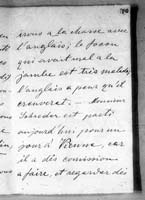 irons a la chasse avec
l'anglais; le facon
qui avait mal a la
jambe est très malade,
l'anglais a peur qu'il
crenerat. — Monsieur
Schroder est parti
aujourd'hui pour un
jour à Vienne, car
il a des comission
a faire, et regarder des